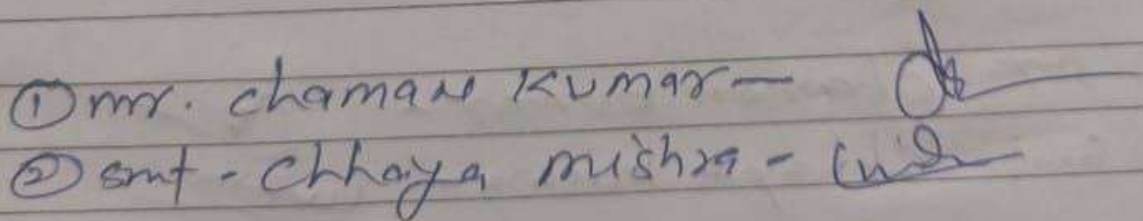 ① mr. chaman kumar —
② smt - chhaya mishra -